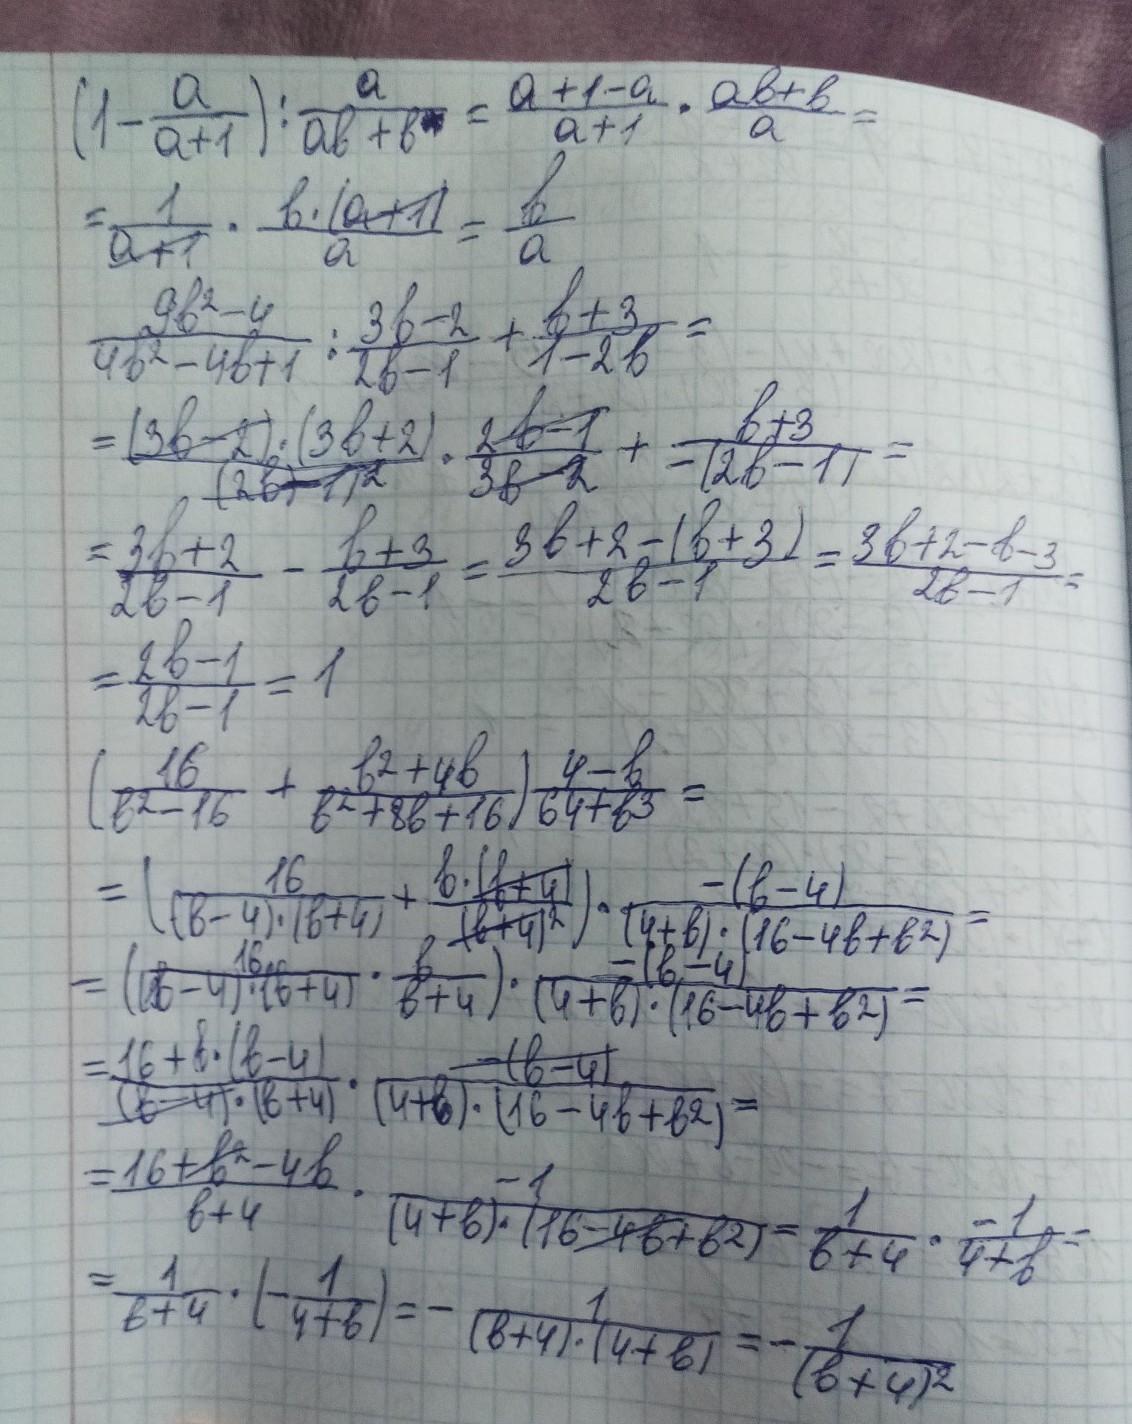 (1 - a/(a+1)) : a/(ab+b) = (a+1-a)/(a+1) · (ab+b)/a =
= 1/(a+1) · b·(a+1)/a = b/a
(9b²-4)/(4b²-4b+1) : (3b-2)/(2b-1) + (b+3)/(1-2b) =
= (3b-2)·(3b+2)/(2b-1)² · (2b-1)/(3b-2) + (b+3)/(-(2b-1)) =
= (3b+2)/(2b-1) - (b+3)/(2b-1) = (3b+2-(b+3))/(2b-1) = (3b+2-b-3)/(2b-1) =
= (2b-1)/(2b-1) = 1
(16/(b²-16) + (b²+4b)/(b²+8b+16)) (4-b)/(64+b³) =
= (16/((b-4)·(b+4)) + b·(b+4)/(b+4)²) · -(b-4)/((4+b)·(16-4b+b²)) =
= (16/((b-4)·(b+4)) · b/(b+4)) · -(b-4)/((4+b)·(16-4b+b²)) =
= (16+b·(b-4))/((b-4)·(b+4)) · -(b-4)/((4+b)·(16-4b+b²)) =
= (16+b²-4b)/(b+4) · -1/((4+b)·(16-4b+b²)) = 1/(b+4) · -1/(4+b) =
= 1/(b+4) · (-1/(4+b)) = - 1/((b+4)·(4+b)) = - 1/(b+4)²